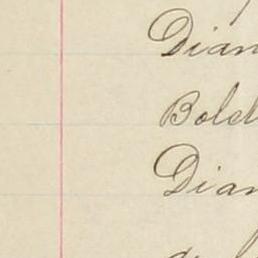 Dian
Bold
Dian